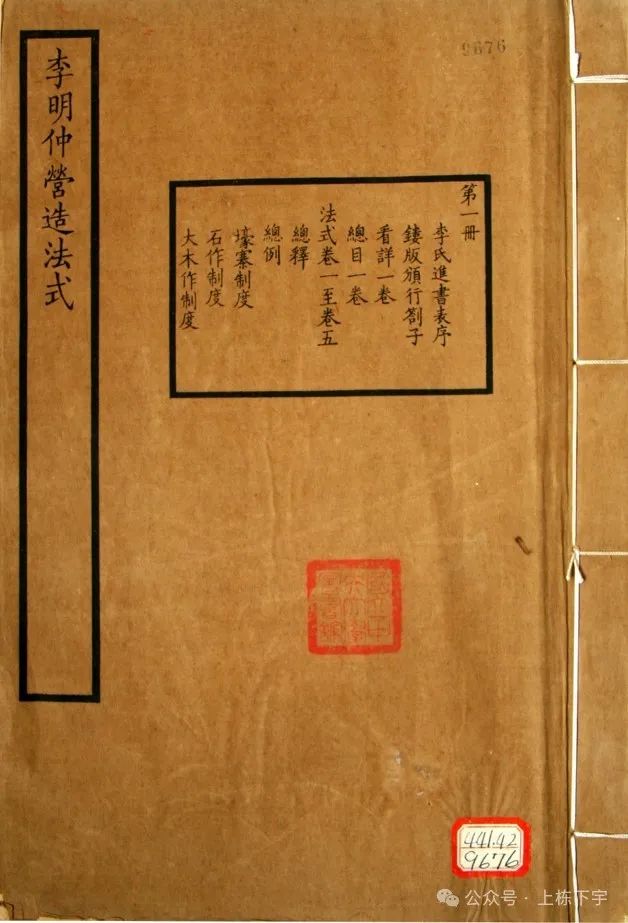 李明仲營造法式
9676
第一冊
李氏進書表序
鏤版頒行劄子
看詳一卷
總目一卷
法式卷一至卷五
總釋
總例
壕寨制度
石作制度
大木作制度
441.42
9676
公众号·上栋下宇